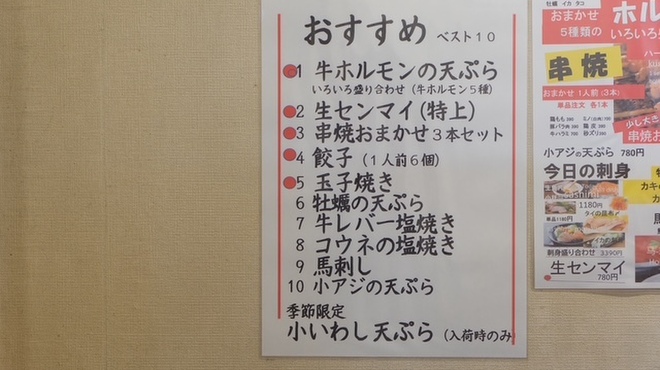 おすすめ ベスト10
1 牛ホルモンの天ぷら
いろいろ盛り合わせ（牛ホルモン5種）
2 生センマイ（特上）
3 串焼おまかせ3本セット
4 餃子（1人前6個）
5 玉子焼き
6 牡蠣の天ぷら
7 牛レバー塩焼き
8 コウネの塩焼き
9 馬刺し
10 小アジの天ぷら
季節限定
小いわし天ぷら（入荷時のみ）
牡蠣 イカ タコ
おまかせ
5種類の
ホル
いろいろ盛り
串焼
おまかせ 1人前（3本）
単品注文 各1本
少し大き
串焼お
小アジの天ぷら 780円
今日の刺身
1180円
タイの昆布
刺身盛り合わせ 3390円
生センマイ
780円